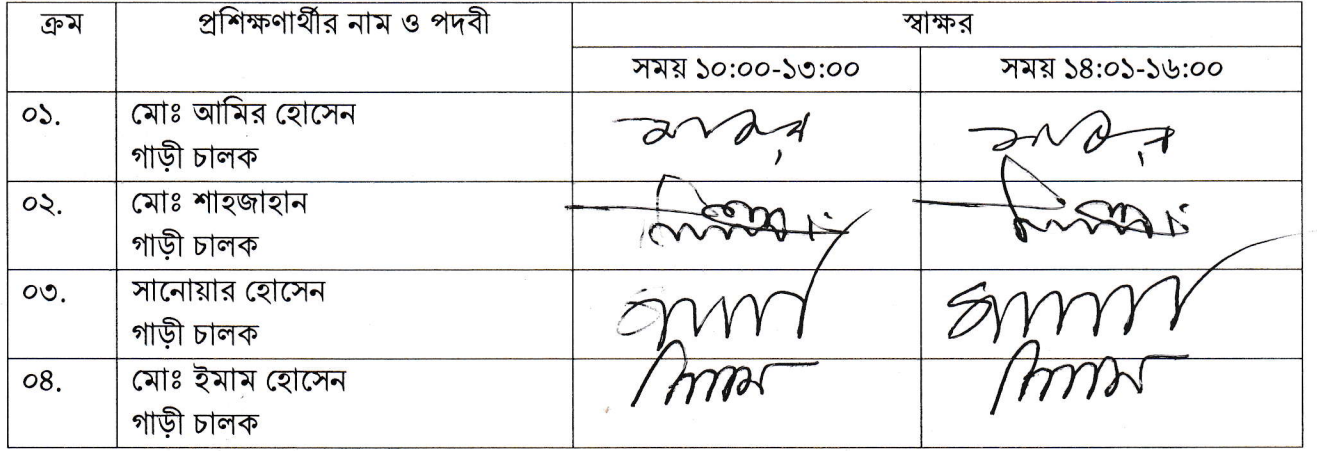 ক্রম প্রশিক্ষণার্থীর নাম ও পদবী স্বাক্ষর
সময় ১০:০০-১৩:০০ সময় ১৪:০১-১৬:০০
০১. মোঃ আমির হোসেন
গাড়ী চালক
০২. মোঃ শাহজাহান
গাড়ী চালক
০৩. সানোয়ার হোসেন
গাড়ী চালক
০৪. মোঃ ইমাম হোসেন
গাড়ী চালক